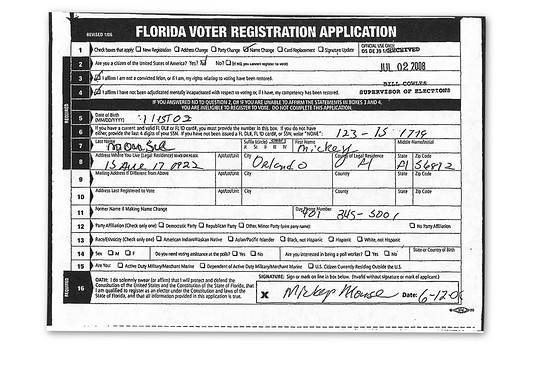 FLORIDA VOTER REGISTRATION APPLICATION
REVISED 1/06
1 Check boxes that apply: New Registration Address Change Party Change Name Change Card Replacement Signature Update
OFFICIAL USE ONLY
RECEIVED
2 Are you a citizen of the United States of America? Yes No (If NO, you cannot register to vote)
JUL 02 2008
3 I affirm I am not a convicted felon, or if I am, my rights relating to voting have been restored.
BILL COWLES
4 I affirm I have not been adjudicated mentally incapacitated with respect to voting or, if I have, my competency has been restored.
SUPERVISOR OF ELECTIONS
IF YOU ANSWERED NO TO QUESTION 2, OR IF YOU ARE UNABLE TO AFFIRM THE STATEMENTS IN BOXES 3 AND 4,
YOU ARE INELIGIBLE TO REGISTER TO VOTE. DO NOT COMPLETE THIS APPLICATION.
5 Date of Birth
(MM/DD/YYYY)
6 If you have a current and valid FL DL# or FL ID card#, you must provide the number in this box. If you do not have
either, provide the last 4 digits of your SSN. If you have not been issued a FL DL#, FL ID card# or SSN, write "NONE":
7 Last Name Suffix First Name Mickey Middle Name/Initial
8 Address Where You Live (Legal Residence) Apt/Lot/Unit City Orlando County of Legal Residence State Zip Code
9 Mailing Address if Different from Above Apt/Lot/Unit City County State Zip Code
10 Address Last Registered to Vote Apt/Lot/Unit City County State Zip Code
11 Former Name if Making Name Change Day Phone Number
12 Party Affiliation (Check only one) Democratic Party Republican Party Other, Minor Party (print party name): No Party Affiliation
13 Race/Ethnicity (Check only one) American Indian/Alaskan Native Asian/Pacific Islander Black, not Hispanic Hispanic White, not Hispanic
14 Sex M F Do you need voting assistance at the polls? Yes No Are you interested in being a poll worker? Yes No State or Country of Birth
15 Are You: Active Duty Military/Merchant Marine Dependent of Active Duty Military/Merchant Marine U.S. Citizen Currently Residing Outside the U.S.
16 OATH: I do solemnly swear (or affirm) that I will protect and defend the
SIGNATURE: Sign or mark on line in box below. (Invalid without signature or mark of applicant.)
Constitution of the United States and the Constitution of the State of Florida, that
I am qualified to register as an elector under the Constitution and laws of the
State of Florida, and that all information provided in this application is true.
X Mickey Mouse Date: